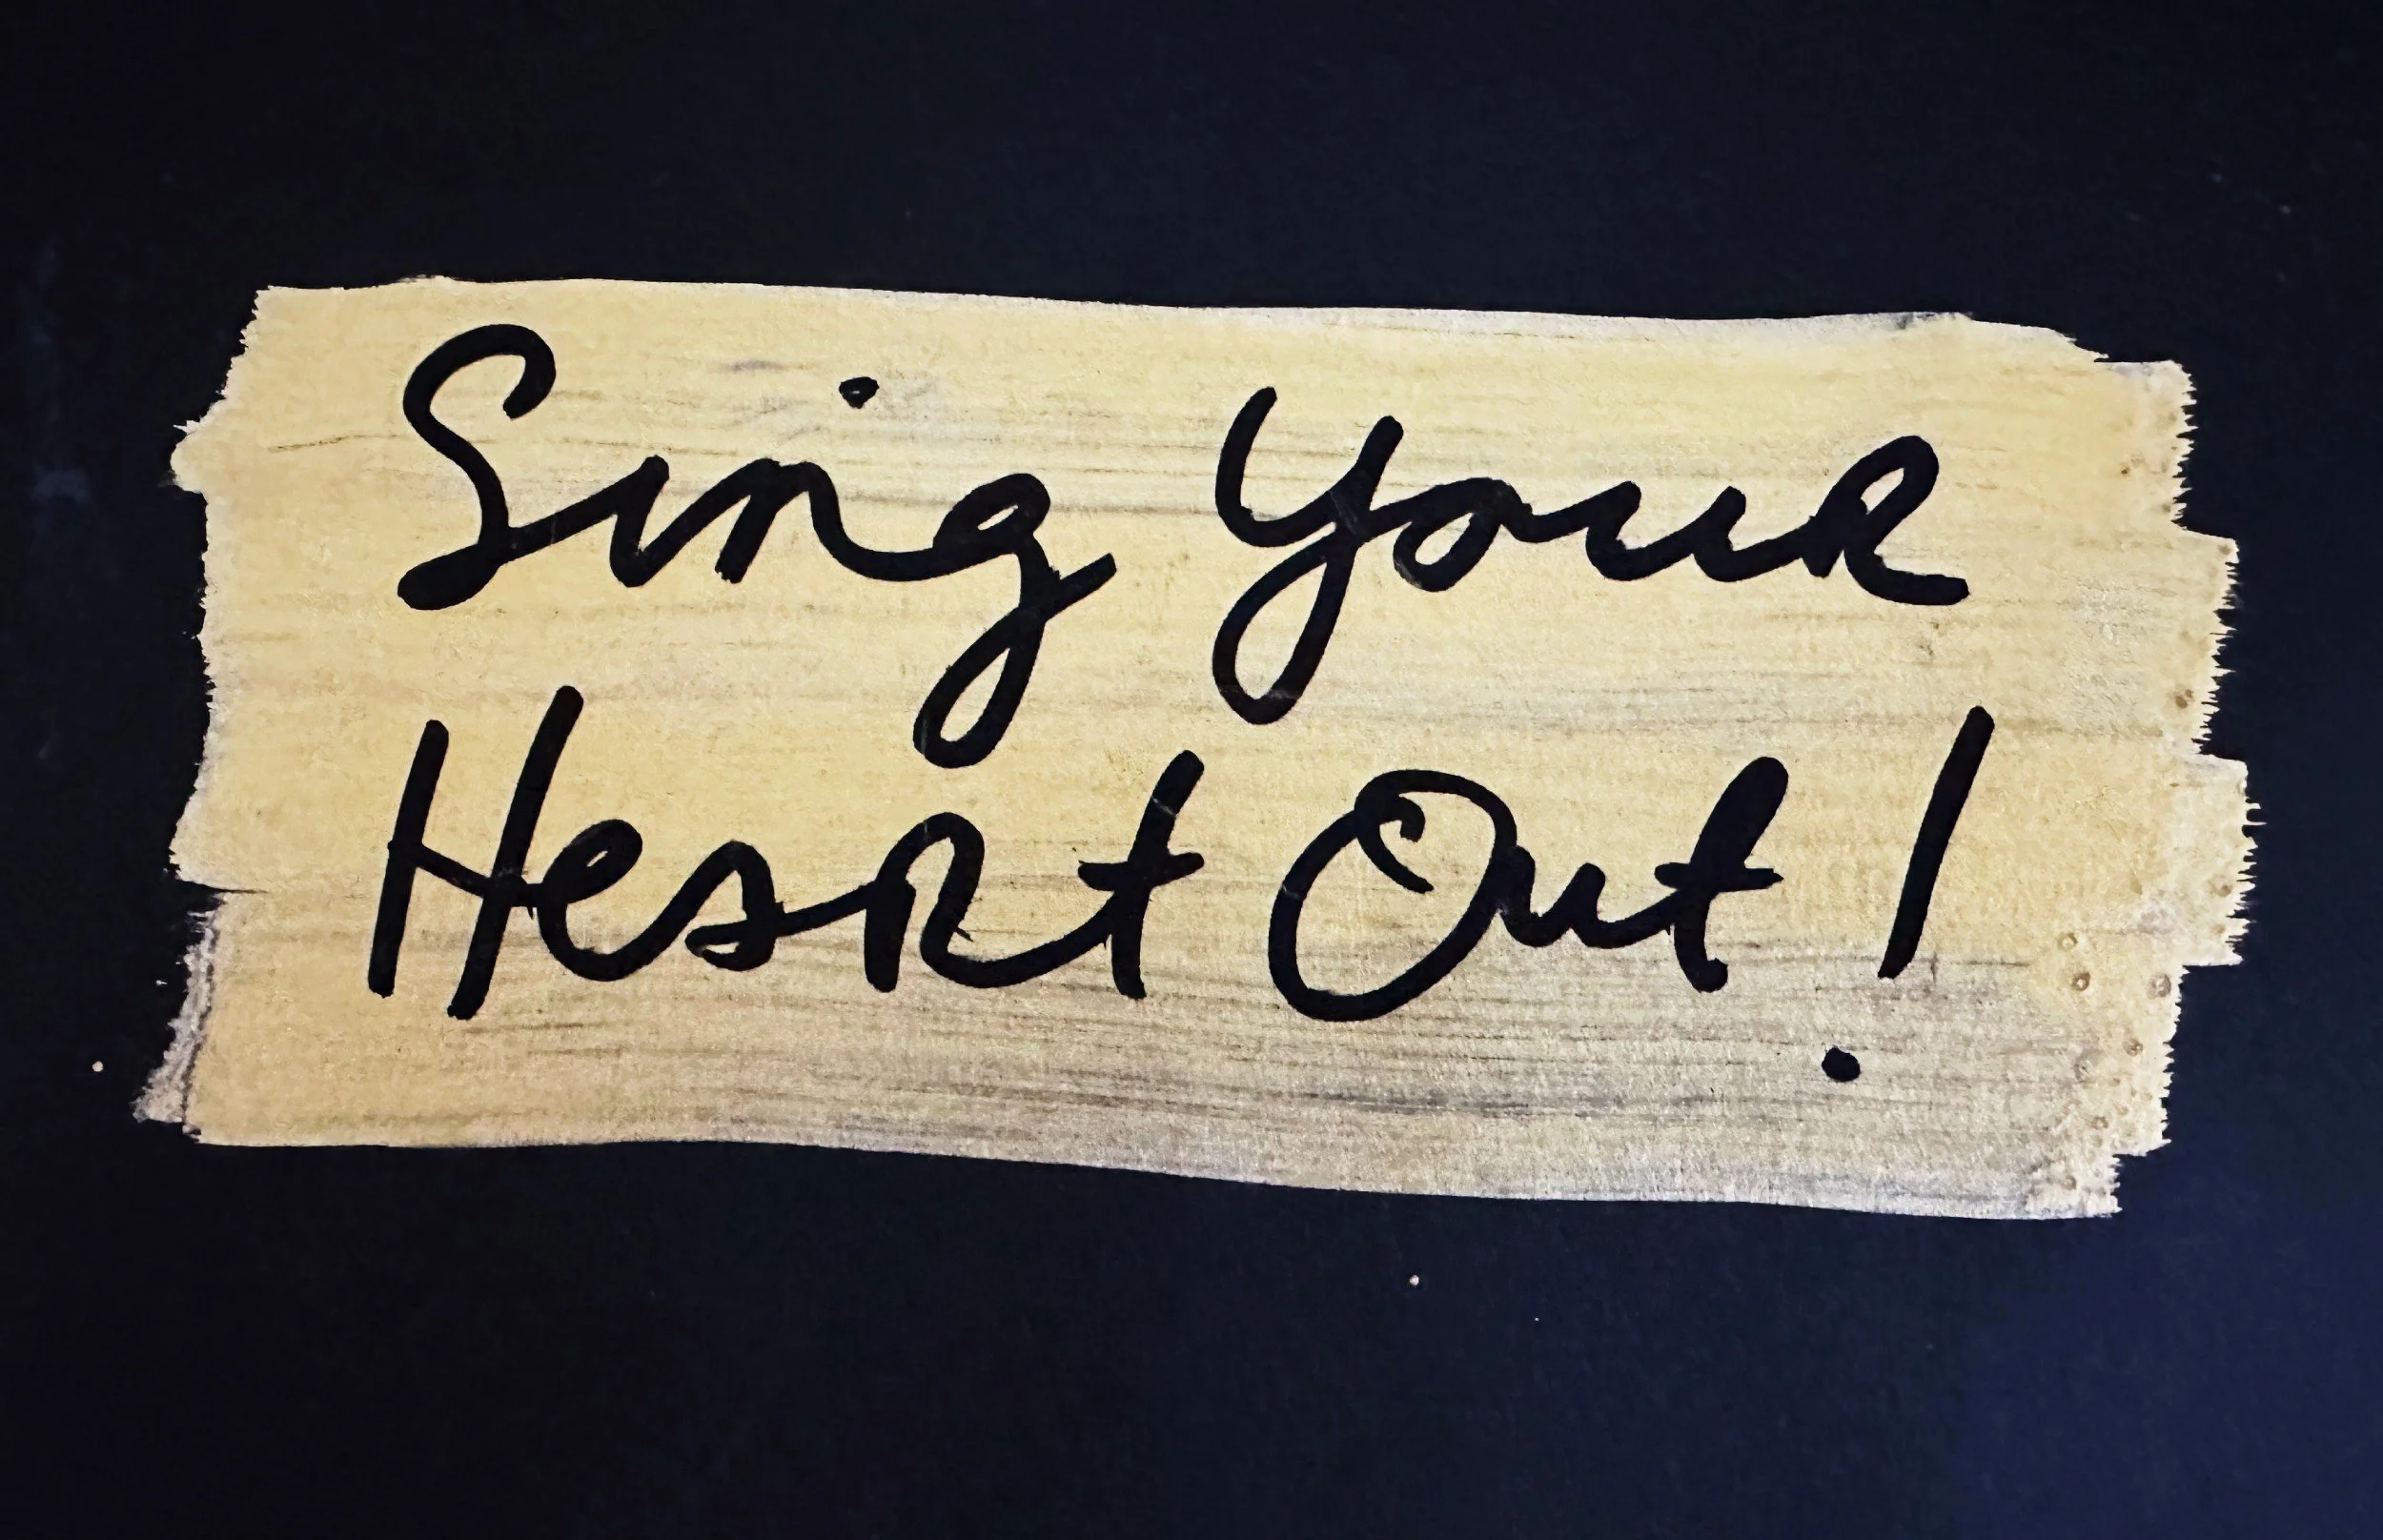 Sing Your
Heart Out!